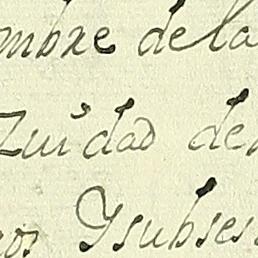 mbre de la
Zuidad de
ros Ysubses